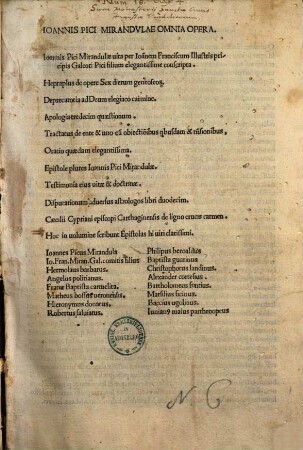 Sum Monasterij Sancte Crucis
Augustæ Vindelicorum
IOANNIS PICI MIRANDVLAE OMNIA OPERA.
Ioannis Pici Mirandulæ uita per Ioānem Franciscum Illustris prī
cipis Galeoti Pici filium elegantissime conscripta.
Heptaplus de opere Sex dierum geneseos.
Deprecatoria ad Deum elegiaco carmine.
Apologia tredecim quæstionum.
Tractatus de ente & uno cū obiectiōibus qbusdam & rñsionibus.
Oratio quædam elegantissima.
Epistole plures Ioannis Pici Mirandulæ.
Testimonia eius uitæ & doctrinæ.
Disputationum aduersus astrologos libri duodecim.
Cæcilii Cypriani episcopi Carthaginensis de ligno crucis carmen.
Hoc in uolumine scribunt Epistolas hi uiri clarissimi.
Ioannes Picus Mirandula
Io. Fran. Miran. Gal. comitis filius
Hermolaus barbarus.
Angelus politianus.
Frater Baptista carmelita.
Matheus bossus ueronensis.
Hieronymus donatus.
Robertus saluiatus.
Philipus beroaldus
Baptista guarinus
Christophorus landinus.
Alexander cortesius
Bartholomeus fontius.
Marsilius ficinus.
Baptista ugolinus.
Iunian9 maius parthenopeus
N 6